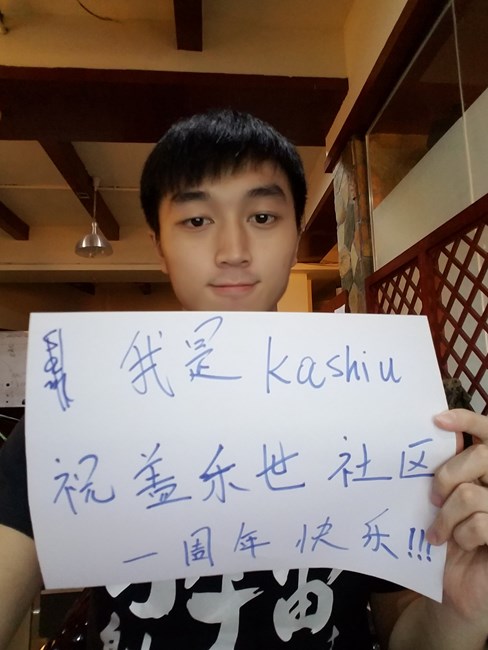 我是 kashiu
祝盖乐世社区
一周年快乐!!!
宇宙